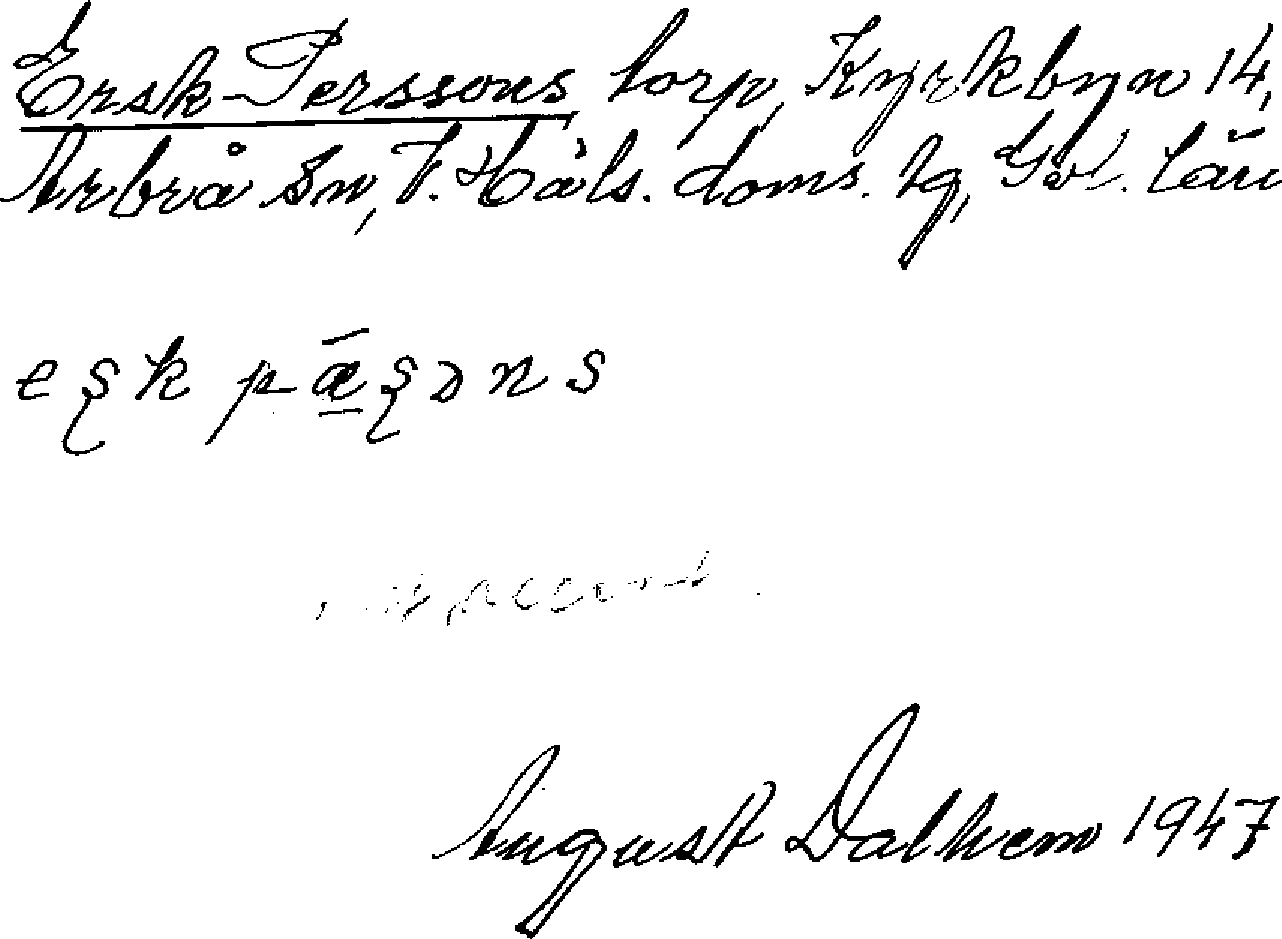 Ersk-Perssons, torp, Kyrkbyn 14,
Arbrå sn, V. Häls. doms. tg, Gävl. län
eʂk pǣʂɔns
August Dalhem 1947